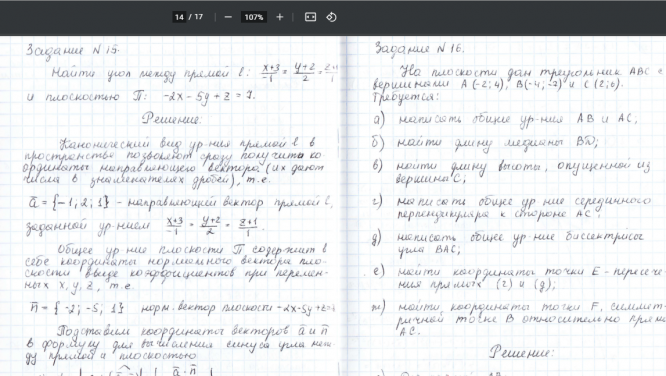 14 / 17
107%
Задание N 15.
Найти угол между прямой l: x+3/-1 = y+2/2 = z+1
и плоскостью П: -2x - 5y + z = 7.
Решение:
Канонический вид ур-ния прямой l в
пространстве позволяет сразу получить ко
ординаты направляющего вектора (их дают
числа в знаменателях дробей), т.е.
ā = {-1; 2; 1} - направляющий вектор прямой l,
заданной ур-нием x+3/-1 = y+2/2 = z+1/1.
Общее ур-ние плоскости П содержит в
себе координаты нормального вектора пло-
скости в виде коэффициентов при перемен-
ных x, y, z, т.е.
n̄ = {-2; -5; 1} норм. вектор плоскости -2x-5y+z=
Подставим координаты векторов ā и n̄
в формулу для вычисления синуса угла меж-
ду прямой и плоскостью
Задание N 16.
На плоскости дан треугольник ABC с
вершинами A(-2; 4), B(-4; -2) и C(2; 0).
Требуется:
а) написать общие ур-ия AB и AC;
б) найти длину медианы BD;
в) найти длину высоты, опущенной из
вершины C;
г) написать общее ур-ние серединного
перпендикуляра к стороне AC;
д) написать общее ур-ние биссектрисы
угла BAC;
е) найти координаты точки E - пересече-
ния прямых (г) и (д);
ж) найти координаты точки F, симмет-
ричной точке B относительно прям
AC.
Решение: